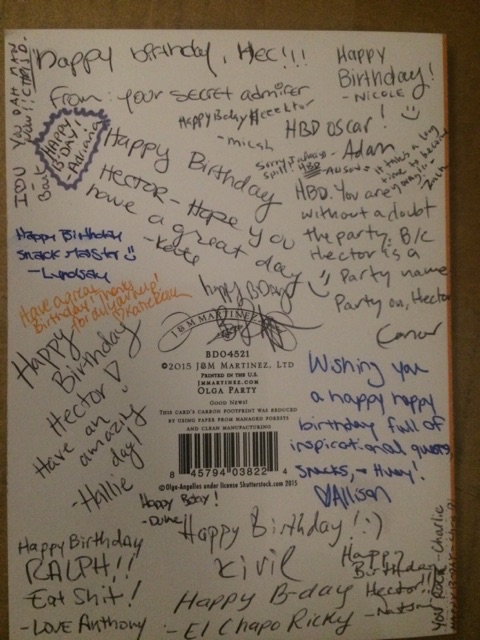 Happy birthday, Hec!!!
From: your secret admirer
Happy
Birthday!
- NICOLE
HBD OSCAR!
- Adam
- micah
HAPPY
B-DAY!
Adriana
Happy Birthday
HECTOR - Hope you
have a great day
- Katie
HBD. You are
without a doubt
the party. B/c
Hector is a
Party name
Party on, Hector
Conor
Happy Birthday
snack master
- Lyndsay
Have a great
Birthday! Thanks
for all your help!
Happy BDay
J&M MARTINEZ
BD04521
©2015 J&M MARTINEZ, LTD
PRINTED IN THE U.S.
JMMARTINEZ.COM
OLGA PARTY
GOOD NEWS!
THIS CARD'S CARBON FOOTPRINT WAS REDUCED
BY USING PAPER FROM MANAGED FORESTS
AND CLEAN MANUFACTURING
8 45794 03822 4
©Olga-Angelloz under license Shutterstock.com 2015
Happy
Birthday
Hector
Have an
amazing
day
- Hallie
Wishing you
a happy happy
birthday full of
inspirational quotes,
snacks, +
Allison
- Duke
Happy Birthday! :)
Kivil
Happy Birthday
RALPH!!
Eat Shit!
- LOVE Anthony
Happy B-day
- El Chapo Ricky
Happy
Birthday
Hector!!
YOU ROCK - Charlie